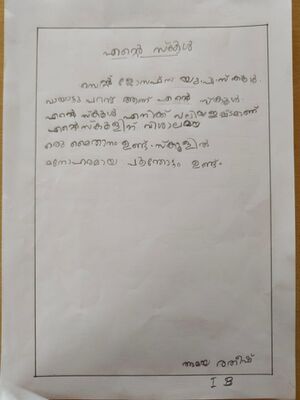 എന്റെ സ്കൂൾ
സെന്റ് ജോസഫ്സ് യു.പി.സ്കൂൾ
പറമ്പ് ആണ് എന്റെ സ്കൂൾ.
എന്റെ സ്കൂൾ എനിക്ക് വലിയഇഷ്ടമാണ്
എന്റെസ്കൂളിന് വിശാലമായ
ഒരു മൈതാനം ഉണ്ട്. സ്കൂളിൽ
മനോഹരമായ പൂന്തോട്ടം ഉണ്ട്.
രതീഷ്
I B